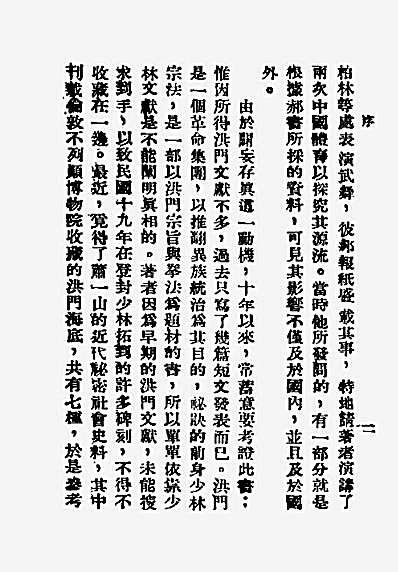 序
二
柏林等處表演武舞，彼邦報紙盛載其事，特地請著者演講了
兩次中國體育以探究其源流。當時他所發問的，有一部分就是
根據郝書所採的資料，可見其影響不僅及於國內，並且及於國
外。
由於闢妄存真這一動機，十年以來，常蓄意要考證此書；
惟因所得洪門文獻不多，過去只寫了幾篇短文發表而已。洪門
是一個革命集團，以推翻異族統治為其目的，秘訣的前身少林
宗法，是一部以洪門宗旨與拳法為題材的書，所以單單依靠少
林文獻是不能闡明真相的。著者因為早期的洪門文獻，未能搜
求到手，以致民國十九年在登封少林拓到的許多碑刻，不得不
收藏在一邊。最近，覓得了蕭一山的近代秘密社會史料，其中
刊載倫敦不列顛博物院收藏的洪門海底，共有七種，於是參考